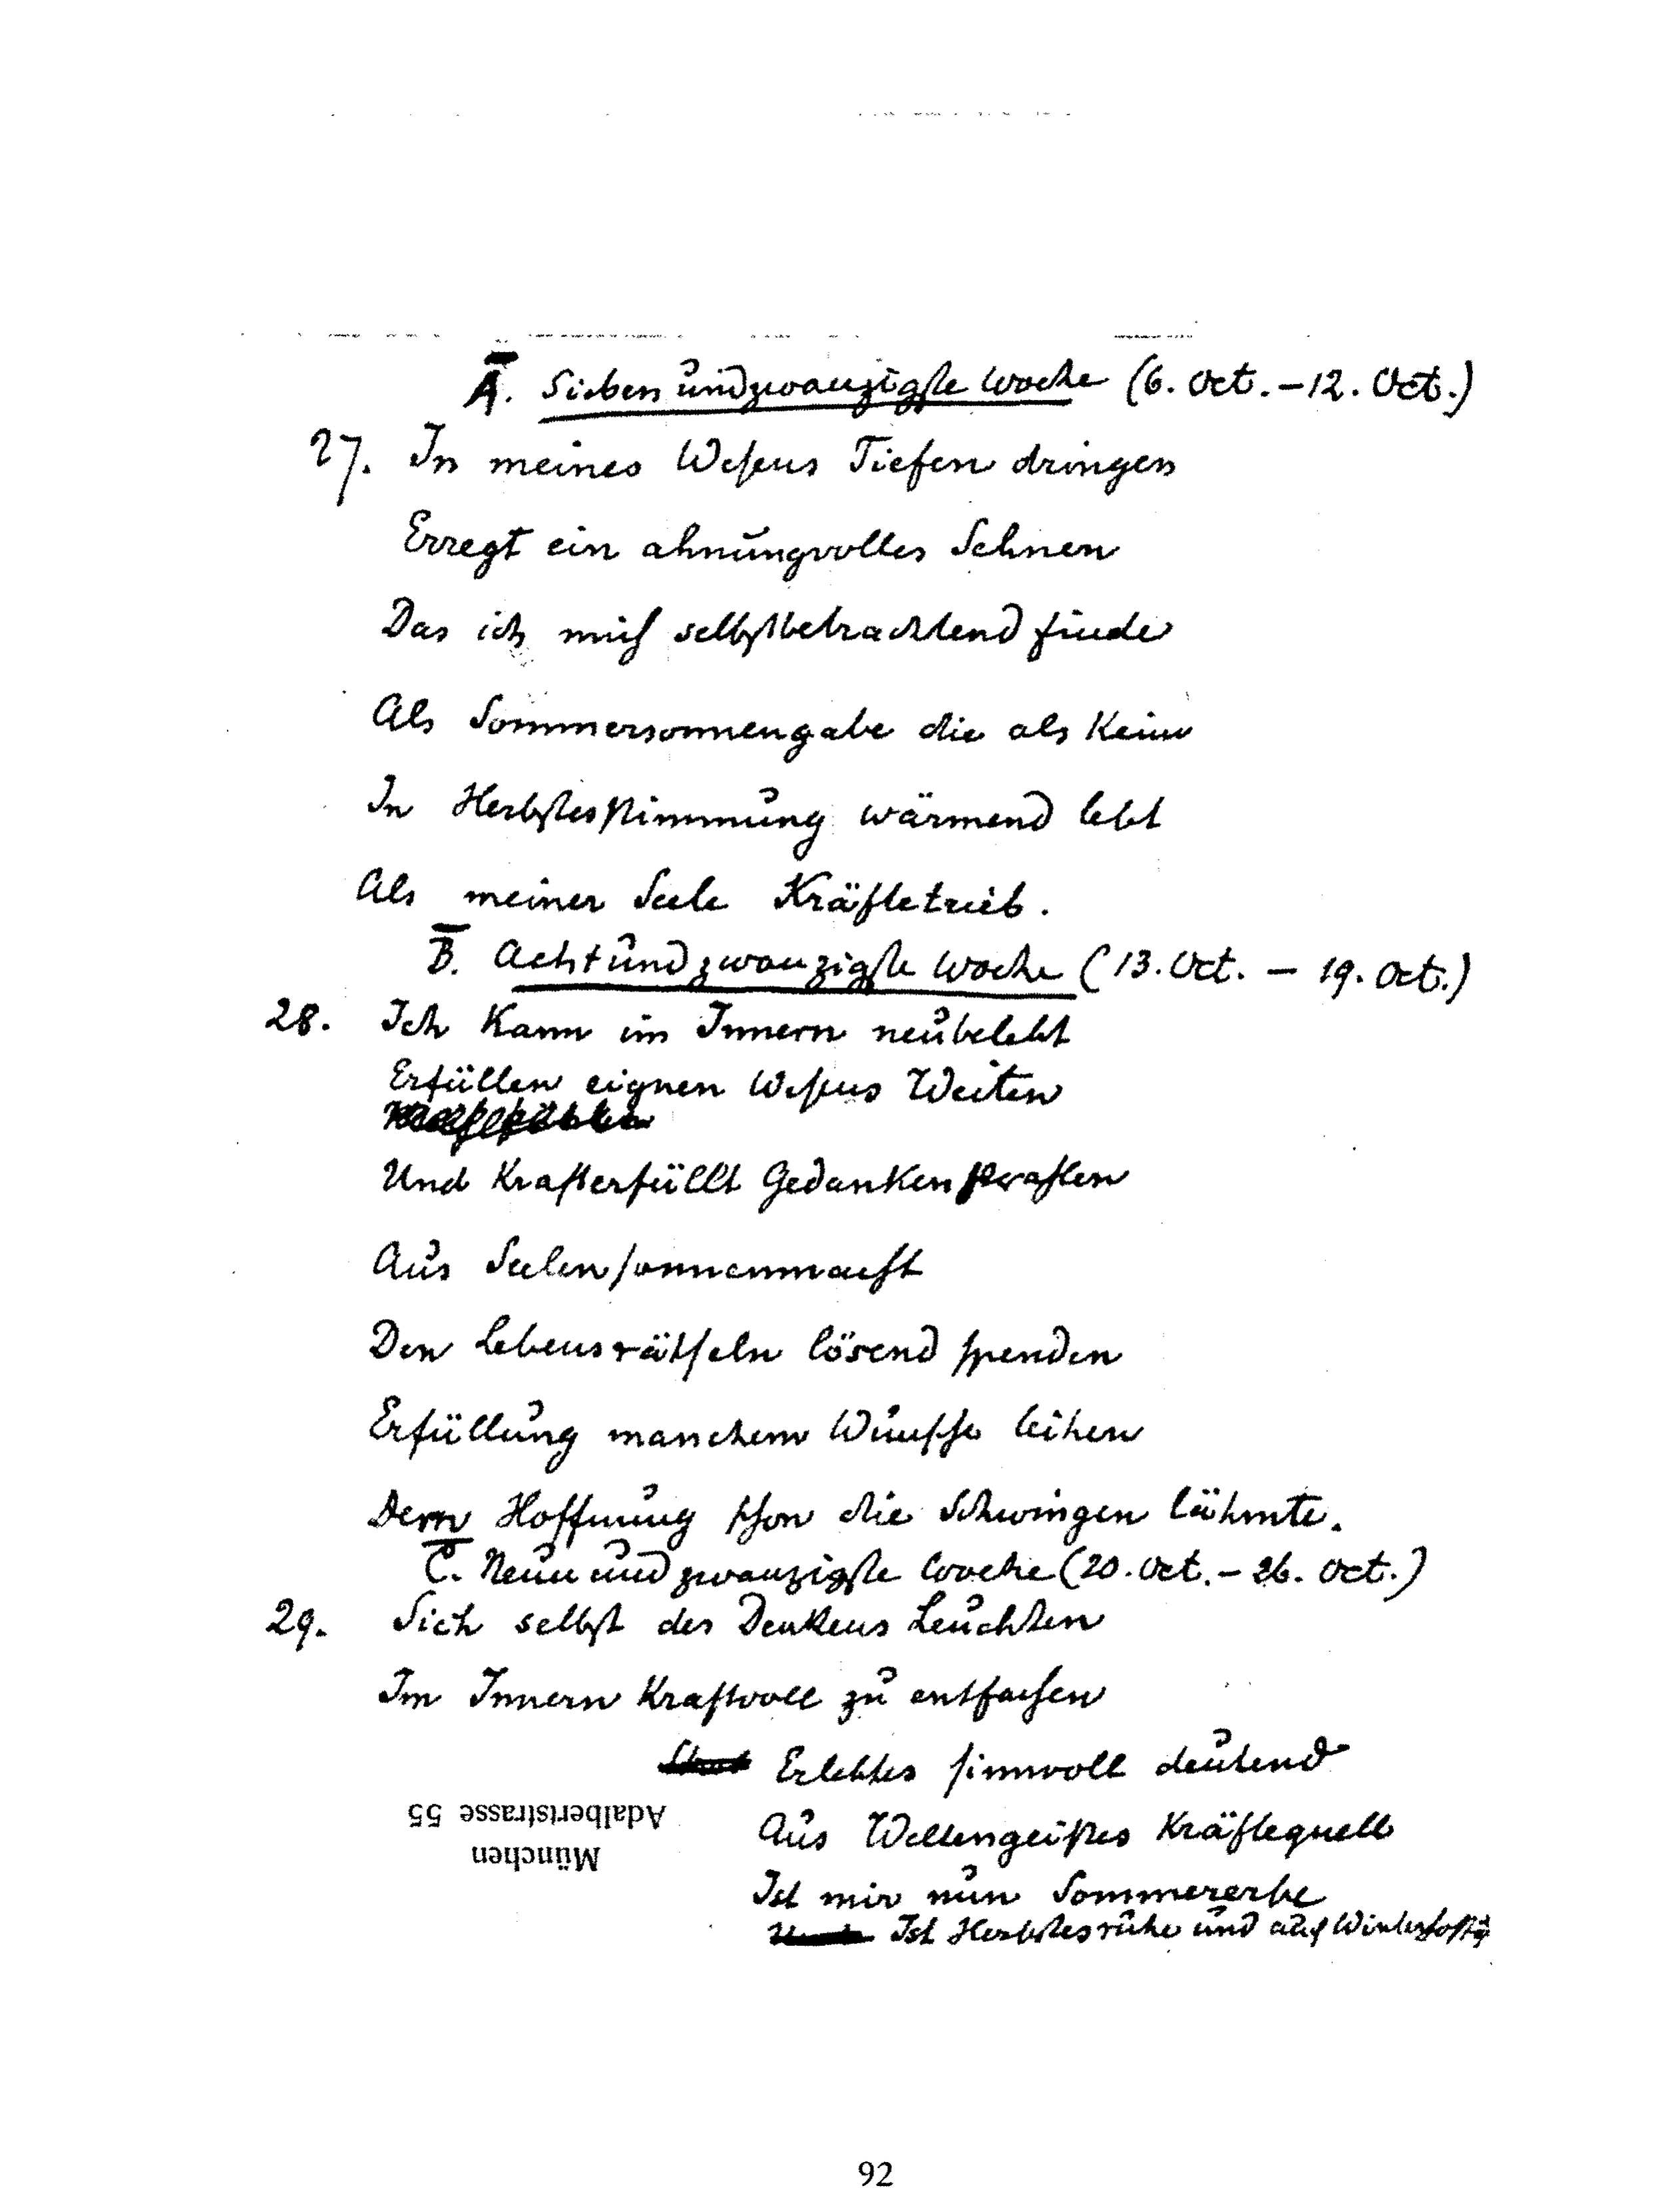 A. Siebenundzwanzigste Woche (6. Oct. – 12. Oct.)
27. In meines Wesens Tiefen dringen
Erregt ein ahnungvolles Sehnen
Das ich mich selbstbetrachtend finde
Als Sommersonnengabe die als Keim
In Herbstesstimmung wärmend lebt
Als meiner Seele Kräftetrieb.
B. Achtundzwanzigste Woche (13. Oct. – 19. Oct.)
28. Ich Kann im Innern neubelebt
Erfüllen eignen Wesens Weiten
Und Krafterfüllt Gedankenstrahlen
Aus Seelensonnenmacht
Den Lebensrätseln lösend spenden
Erfüllung manchem Wunsche leihen
Dem Hoffnung schon die Schwingen lähmte.
C. Neunundzwanzigste Woche (20. Oct. – 26. Oct.)
29. Sich selbst des Denkens Leuchten
Im Innern Kraftvoll zu entfachen
Erlebtes sinnvoll deutend
Adalbertstrasse 55
Aus Weltengeistes Kräftequell
München
Ist mir nun Sommererbe
Ist Herbstesruhe und auch
92